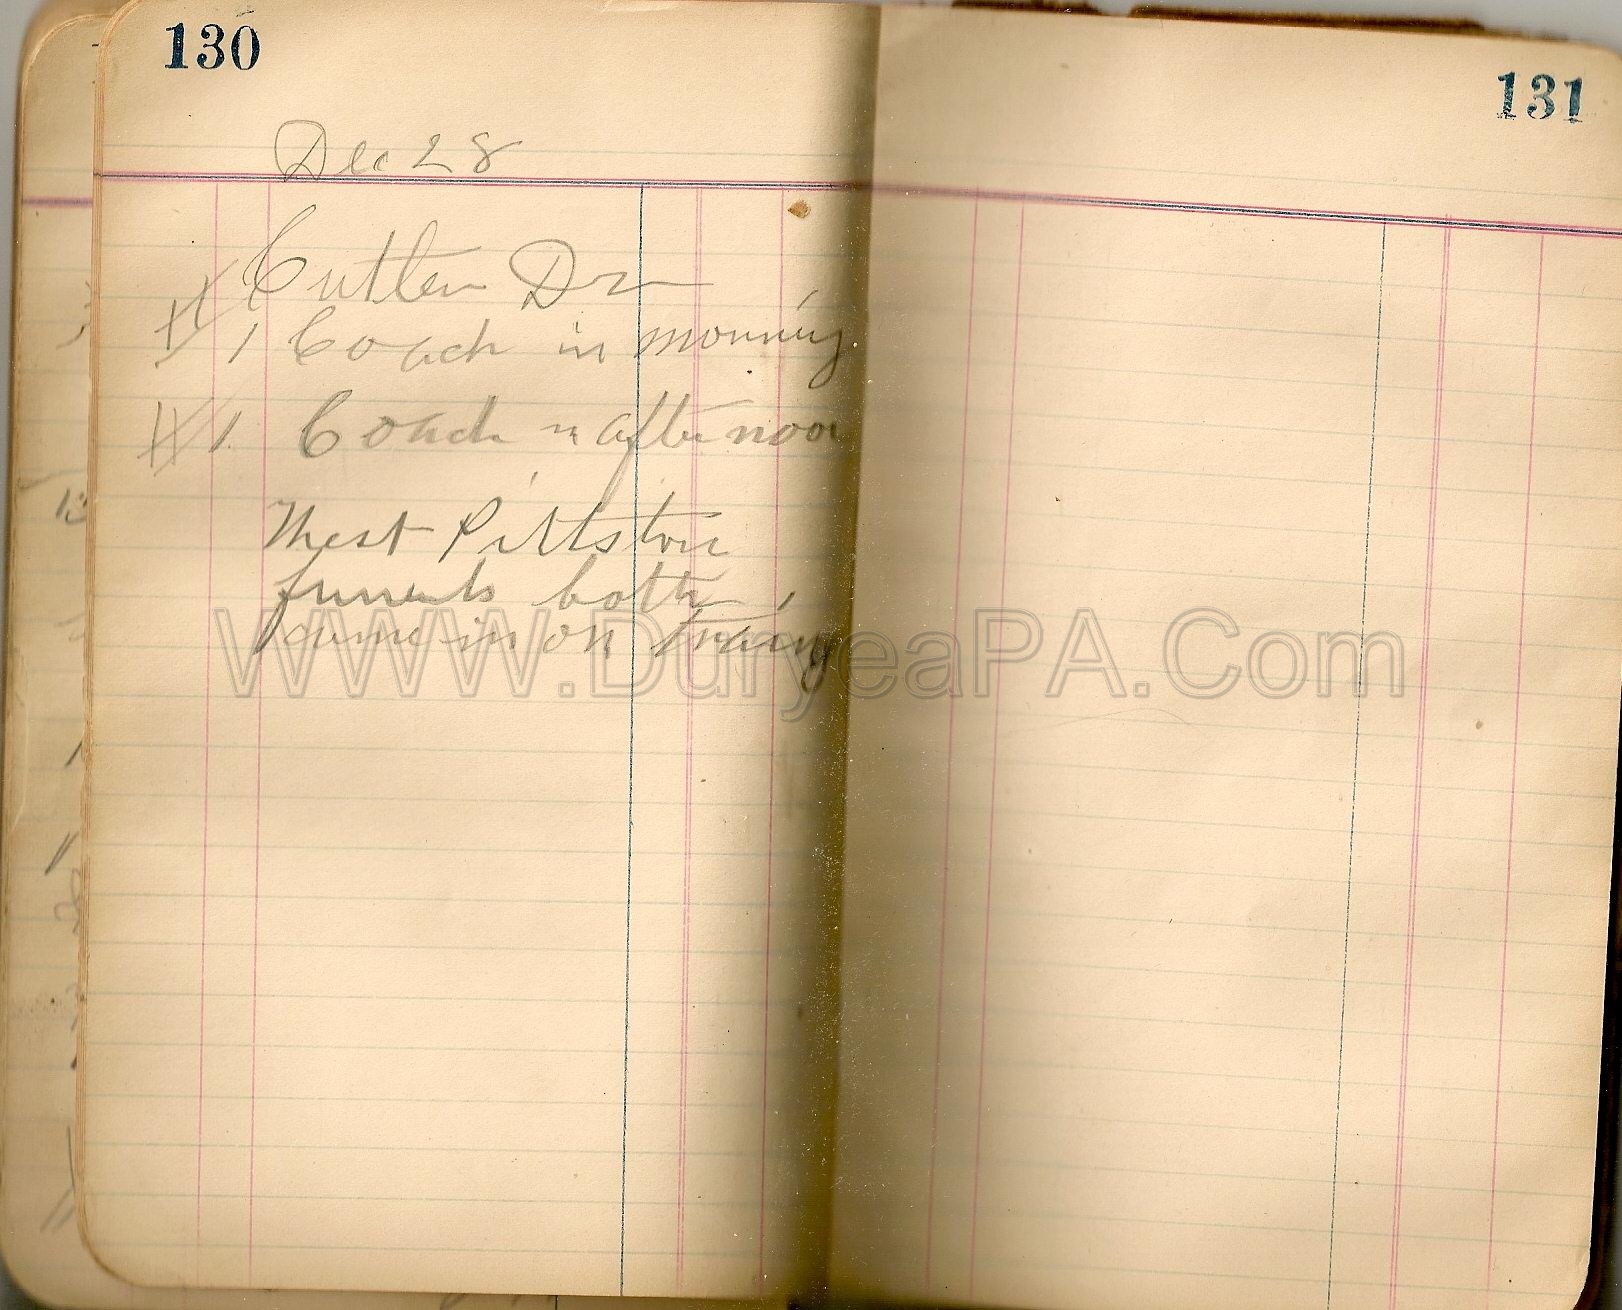 130
Dec 28
Cutler Dr
1 Coach in morning
1 Coach in afternoon
West Pittston
funerals both
came in on train
131
WWW.DuryeaPA.Com